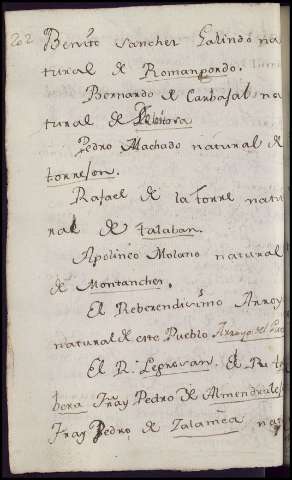 202
Benito Sancher Galindo na
tural de Romanpordo.
Bernardo de Carbajal na
tural de
Pedro Machado natural de
torreson.
Rafael de la torre natu
ral de talaban.
Apolineo Molano natural
de Montancher.
El Reberendisimo Arroyo
natural de este Pueblo Arroyo del
El R. Leprovan. El
bera Fray Pedro de Almendrales
Fray Pedro de Zalamea na